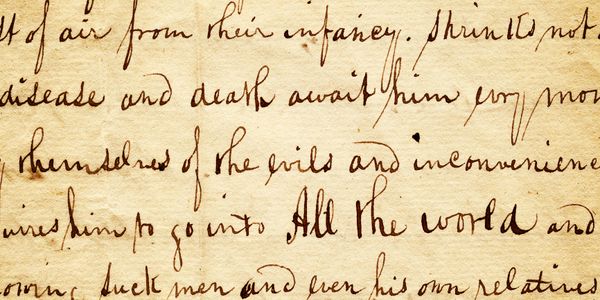 of air from their infancy. Shrinks not
disease and death await him evry
themselves of the evils and
him to go into All the world and
men and even his own relatives